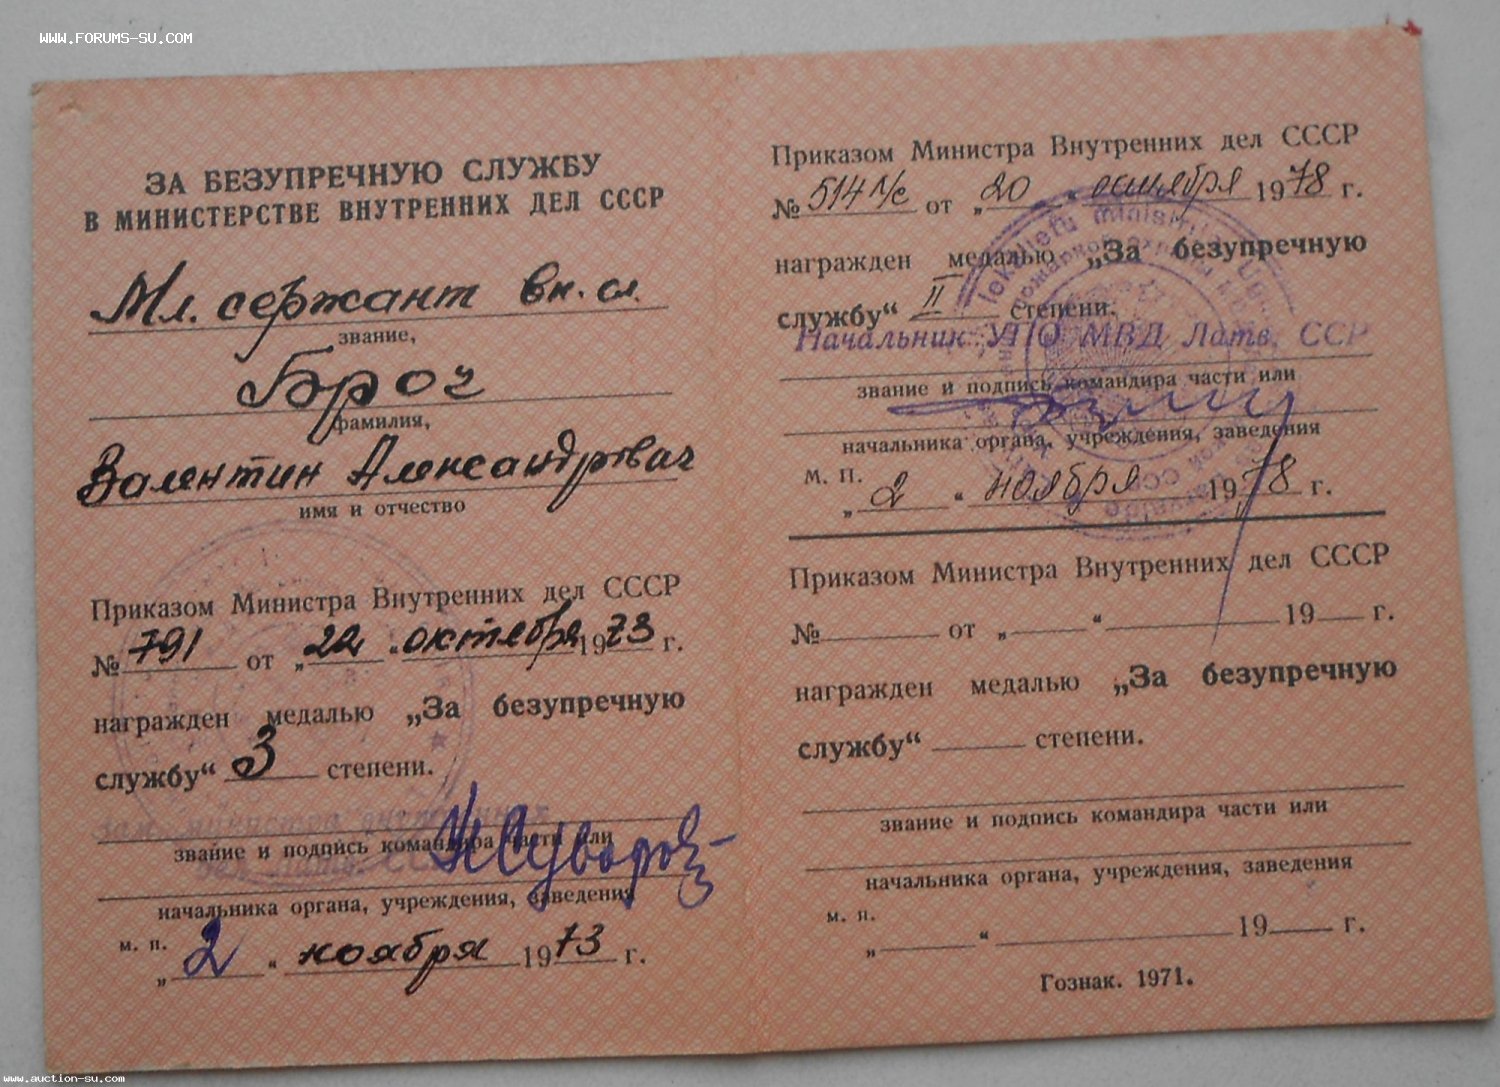 WWW.FORUMS-SU.COM
ЗА БЕЗУПРЕЧНУЮ СЛУЖБУ
В МИНИСТЕРСТВЕ ВНУТРЕННИХ ДЕЛ СССР
Мл. сержант вн. сл.
звание,
Броч
фамилия,
Валентин Александрович
имя и отчество
Приказом Министра Внутренних дел СССР
№ 791 от „22“ октября 1973 г.
награжден медалью „За безупречную
службу“ 3 степени.
зам. министра внутренних
звание и подпись командира части или
дел Латв. ССР
Н Суворов
начальника органа, учреждения, заведения
м. п.
„2“ ноября 1973 г.
Приказом Министра Внутренних дел СССР
№ 514 л/с от „20“ октября 1978 г.
награжден медалью „За безупречную
службу“ II степени.
Начальник УПО МВД Латв. ССР
звание и подпись командира части или
начальника органа, учреждения, заведения
м. п.
„2“ ноября 1978 г.
Приказом Министра Внутренних дел СССР
№ от „ “ 19 г.
награжден медалью „За безупречную
службу“ степени.
звание и подпись командира части или
начальника органа, учреждения, заведения
м. п.
„ “ 19 г.
Гознак. 1971.
www.auction-su.com